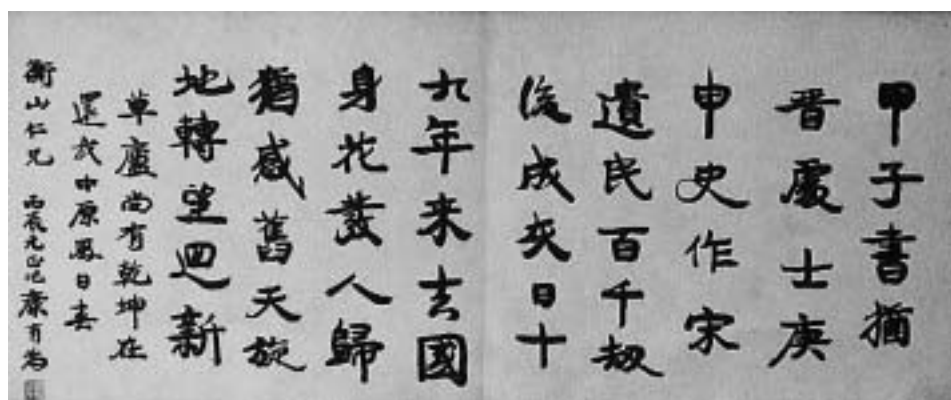 甲子書猶
晋處士庚
申史作宋
遺民百千劫
後成灰日十
九年来去國
身花發人歸
猶感舊天旋
地轉望迴新
草廬尚有乾坤在
還我中原風日春
衡山仁兄 丙辰元 康有為